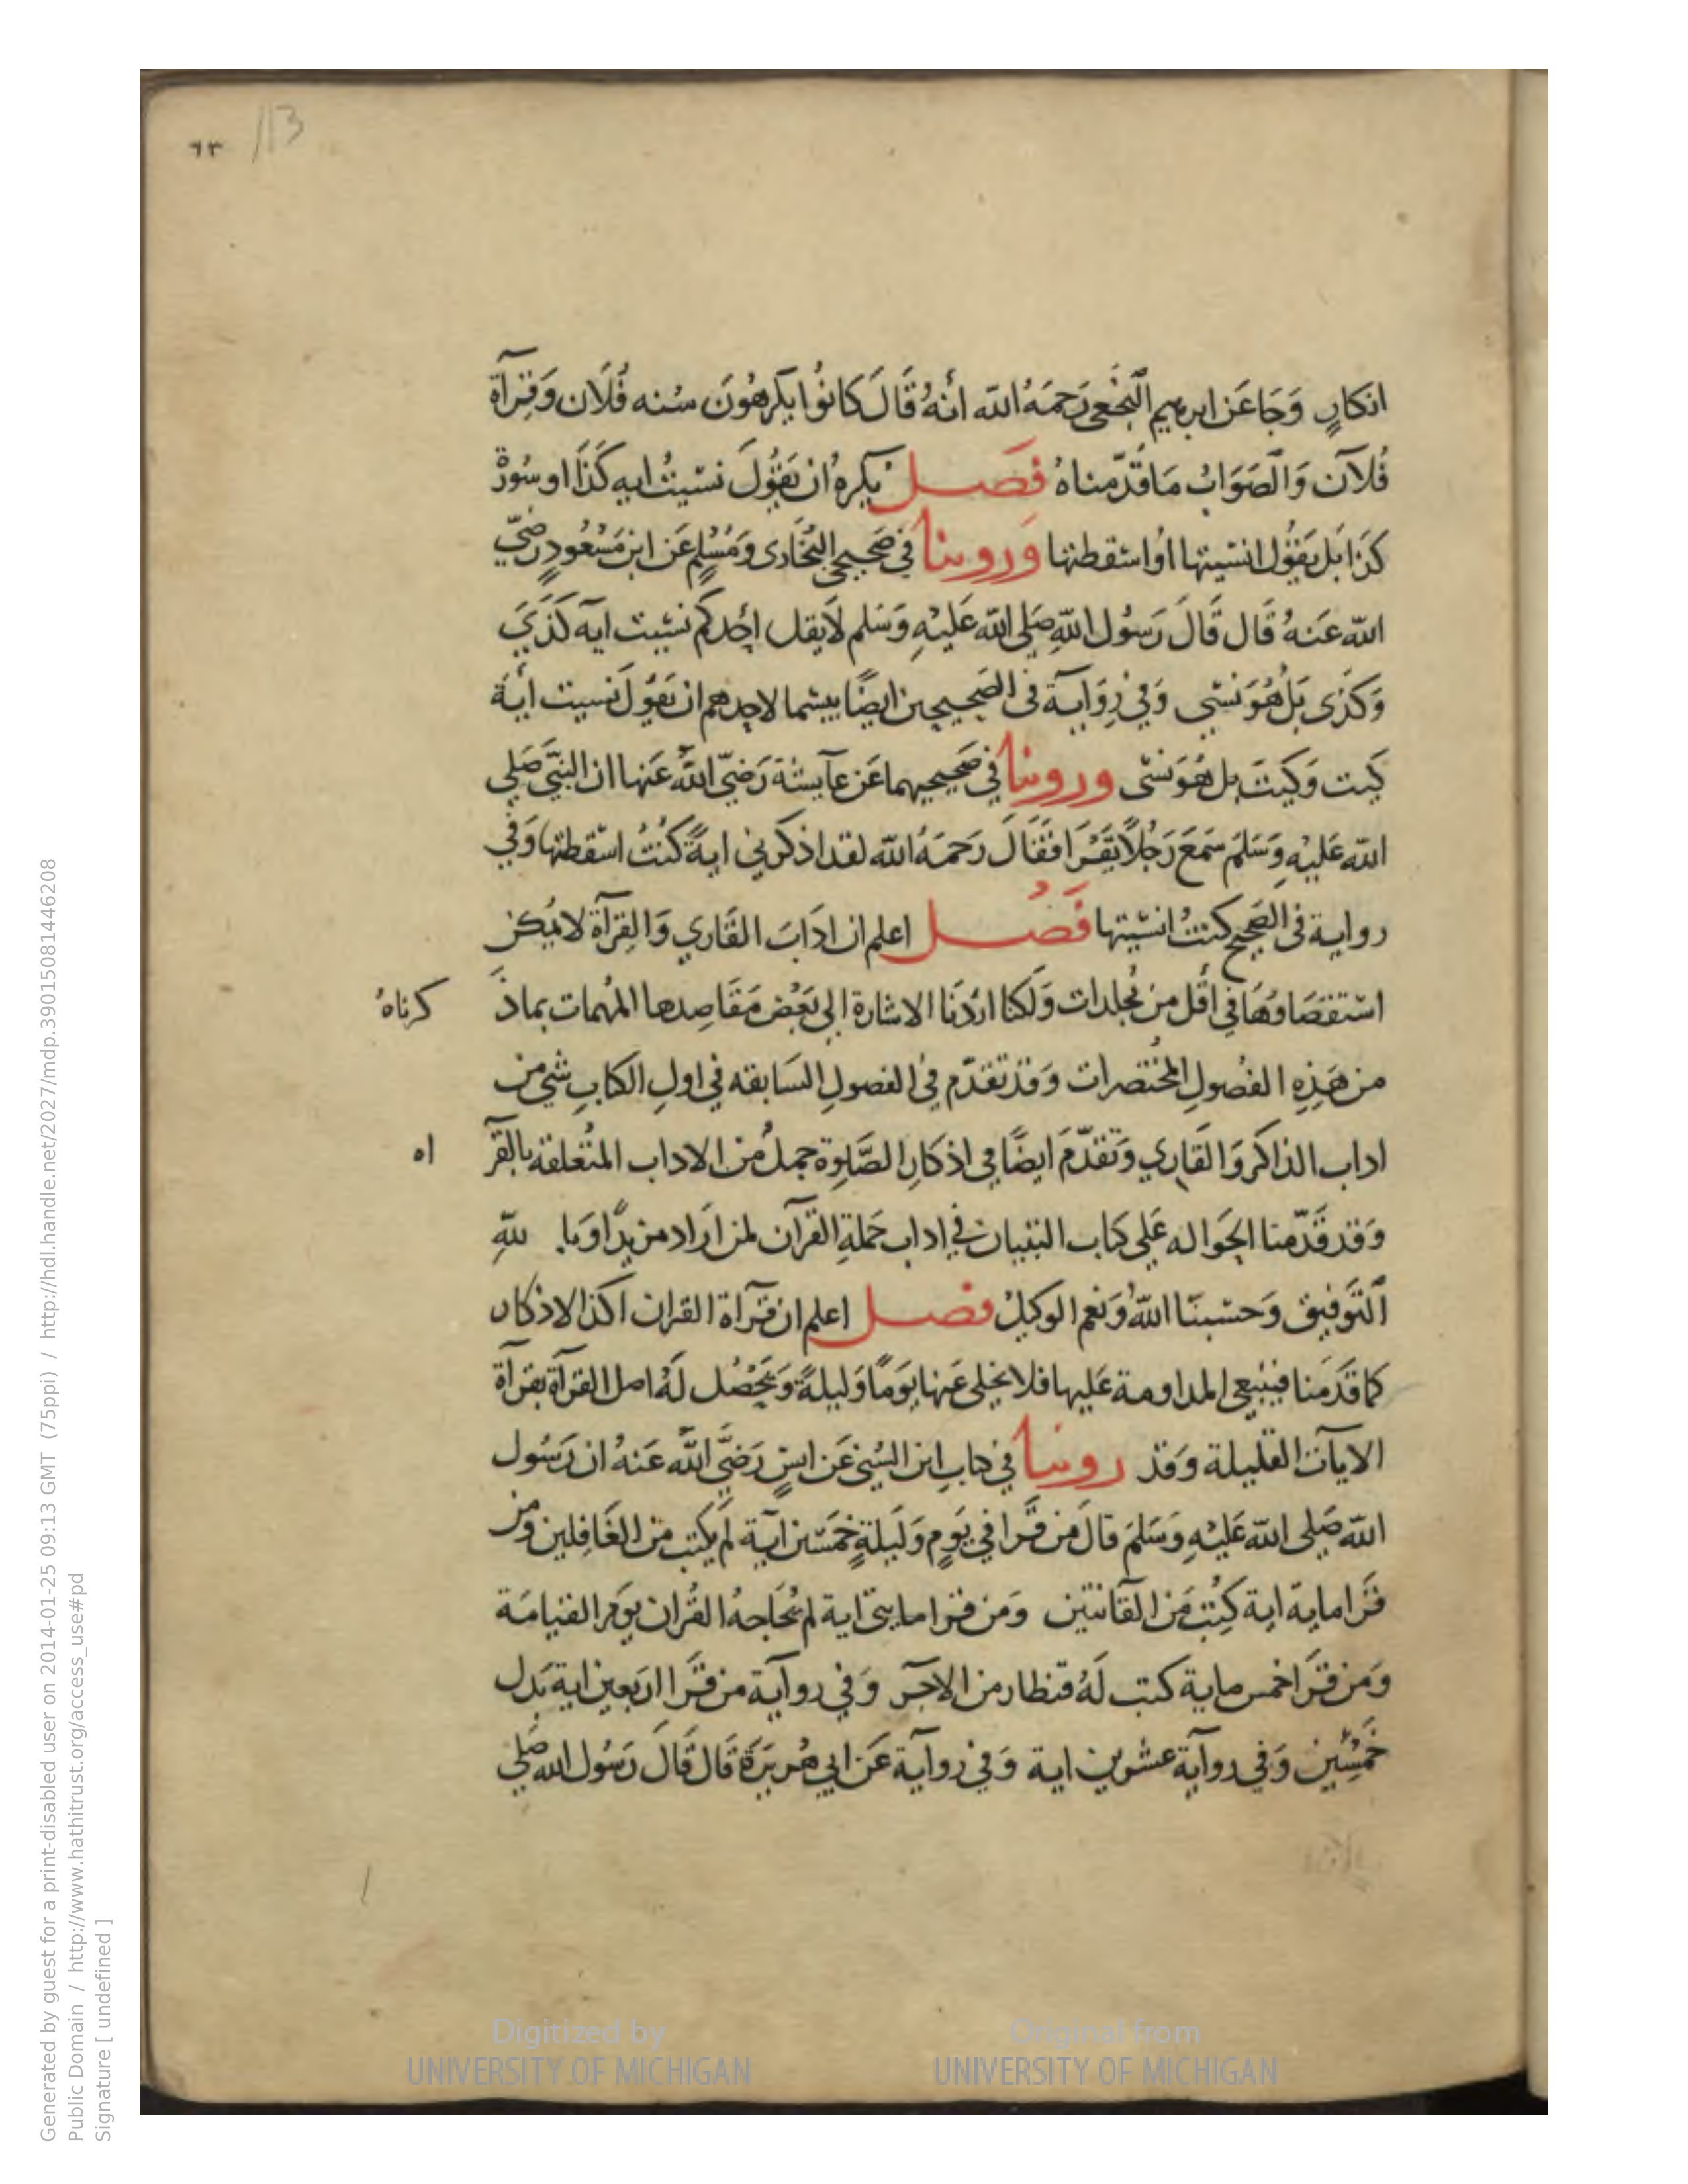 ٦٣ 113
انكارٍ وَجَا عَن ابرهيم النَّخعي رَحمَهُ الله أنهُ قَالَ كَانوُا يكرهُونَ سُنه فُلَان وَقِرآة
فُلآن وَالصَّوَابُ مَا قدّمناهُ فَصــل يكرهُ ان يَقوُلَ نسَيتُ ايه كَذَا او سُورة
كذا بَل يَقوُل انسَيتها اوُ اسْقطتها وَروينا في صَحيحي البُخَارى وَمُسْلِم عَن ابن مَسْعُودٍ رضيّ
الله عَنهُ قَال قَالَ رَسُول اللهِ صَلى الله عَليْهِ وَسَلم لَا يقل احَدكم نسَيت ايَه كَذَي
وَكذَى بَلْ هُوَ نسّي وَفي رِوَايَة في الصَحيحين ايضًا بيسَما لاحدهم ان يَقوُلَ نسيت ايَة
كَيت وَكَيتَ بل هُوَ نسّى وروينا في صَحيحيهما عَن عآيشة رَضيّ اللهُ عَنها ان النبيّ صَلي
الله عَليْهِ وَسَلمَ سَمَعَ رَجُلاً يَقرَا فقَالَ رَحمَهُ الله لقد اذكرني ايةً كنُتُ اسْقطتها وَفي
رواية في الصَحيح كنتُ انسَيتها فَصــل اعلم ان ادَابَ القَاري وَالقِرآة لا يُمكن
استقصَاوُهَا في اقل من مُجلدات وَلَكنا اردنَا الاشارة الي بَعْض مَقَاصِدها المُهمات بماذ
كرناهُ
من هَذِهِ الفصُولِ المُختصرات وَقد تقدّم في الفصولِ السَابقه في اولِ الكتابِ شي من
اداب الذاكر وَالقَاري وَتقدّمَ ايضًا في اذكار الصَّلوة جمل من الاداب المتُعلقة بالقرآ
اه
وَقد قَدّمنا الحَواله عَلي كتاب التبيان في اداب حَملةِ القرآن لمن ارَاد مزيدًا وَبا للهِ
التَّوفيق وَحسبنَا اللهُ وَنعم الوكيلُ فصــل اعلم ان قرآة القران اكد الاذكار
كما قدَمنا فينبغي المداومة عَليها فلا يخلي عَنها يوَمًا وَليلةً وَيحْصُل لَهُ اصل القرآة بقرآة
الايآت القليلة وَقد روينا في كتابِ ابن السُني عَن انسٍ رَضيَّ اللهُ عَنهُ ان رَسُول
الله صَلى الله عَليْهِ وَسَلمَ قالَ من قرا في يَومٍ وَلَيلةٍ خمَسْين اَية لم يكتب من الغَافِلين ومن
قرَا ماية اية كتِبَ مَن القَانتين وَمَن قرا مايتى اية لم يُحَاجهُ القُران يوَم القيامَة
وَمَن قرَا خمس ماية كتب لَهُ قنطار من الاجر وَفي روايَة من قرَا اربَعين اية بَدل
خَمسْين وَفي روايَة عشرين اية وَفي روايَة عَن ابي هُريَرَة قَال قَالَ رَسُول الله صَلي
Digitized by UNIVERSITY OF MICHIGAN
Original from UNIVERSITY OF MICHIGAN
Generated by guest for a print-disabled user on 2014-01-25 09:13 GMT (75ppi) / http://hdl.handle.net/2027/mdp.39015081446208
Public Domain / http://www.hathitrust.org/access_use#pd
Signature [ undefined ]